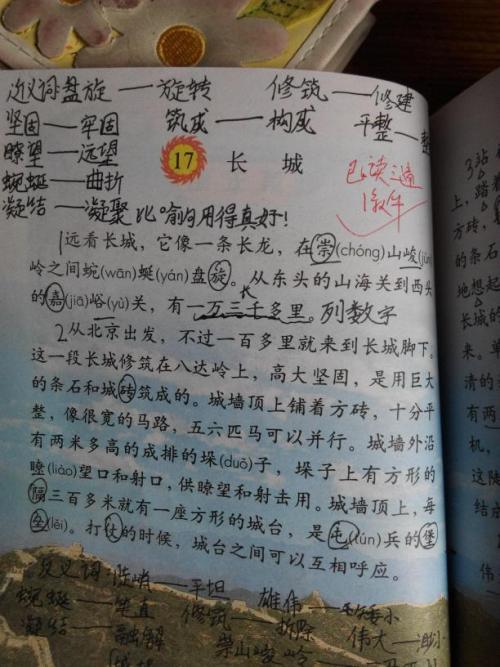 近义词盘旋——旋转 修筑——修建
坚固——牢固 筑成——构成 平整——
瞭望——远望
17 长 城
蜿蜒——曲折
已读三遍
凝结——凝聚 比喻句用得真好!
1远看长城,它像一条长龙,在崇(chóng)山峻(jùn)
岭之间蜿(wān)蜒(yán)盘旋。从东头的山海关到西头
的嘉(jiā)峪(yù)关,有一万三千多里。列数字
2从北京出发,不过一百多里就来到长城脚下。
这一段长城修筑在八达岭上,高大坚固,是用巨大
的条石和城砖筑成的。城墙顶上铺着方砖,十分平
整,像很宽的马路,五六匹马可以并行。城墙外沿
有两米多高的成排的垛(duǒ)子,垛子上有方形的
瞭(liào)望口和射口,供瞭望和射击用。城墙顶上,每
隔三百多米就有一座方形的城台,是屯(tún)兵的堡
垒(lěi)。打仗的时候,城台之间可以互相呼应。
反义词:陡峭——平坦 雄伟——
蜿蜒——笔直 修筑——拆除 伟大——渺小
凝结——融解 崇山峻岭——
3站
上,踏着
方砖,
的条石
地想起
长城的
来。单
清的
有两
机,
这陡
结成
伟